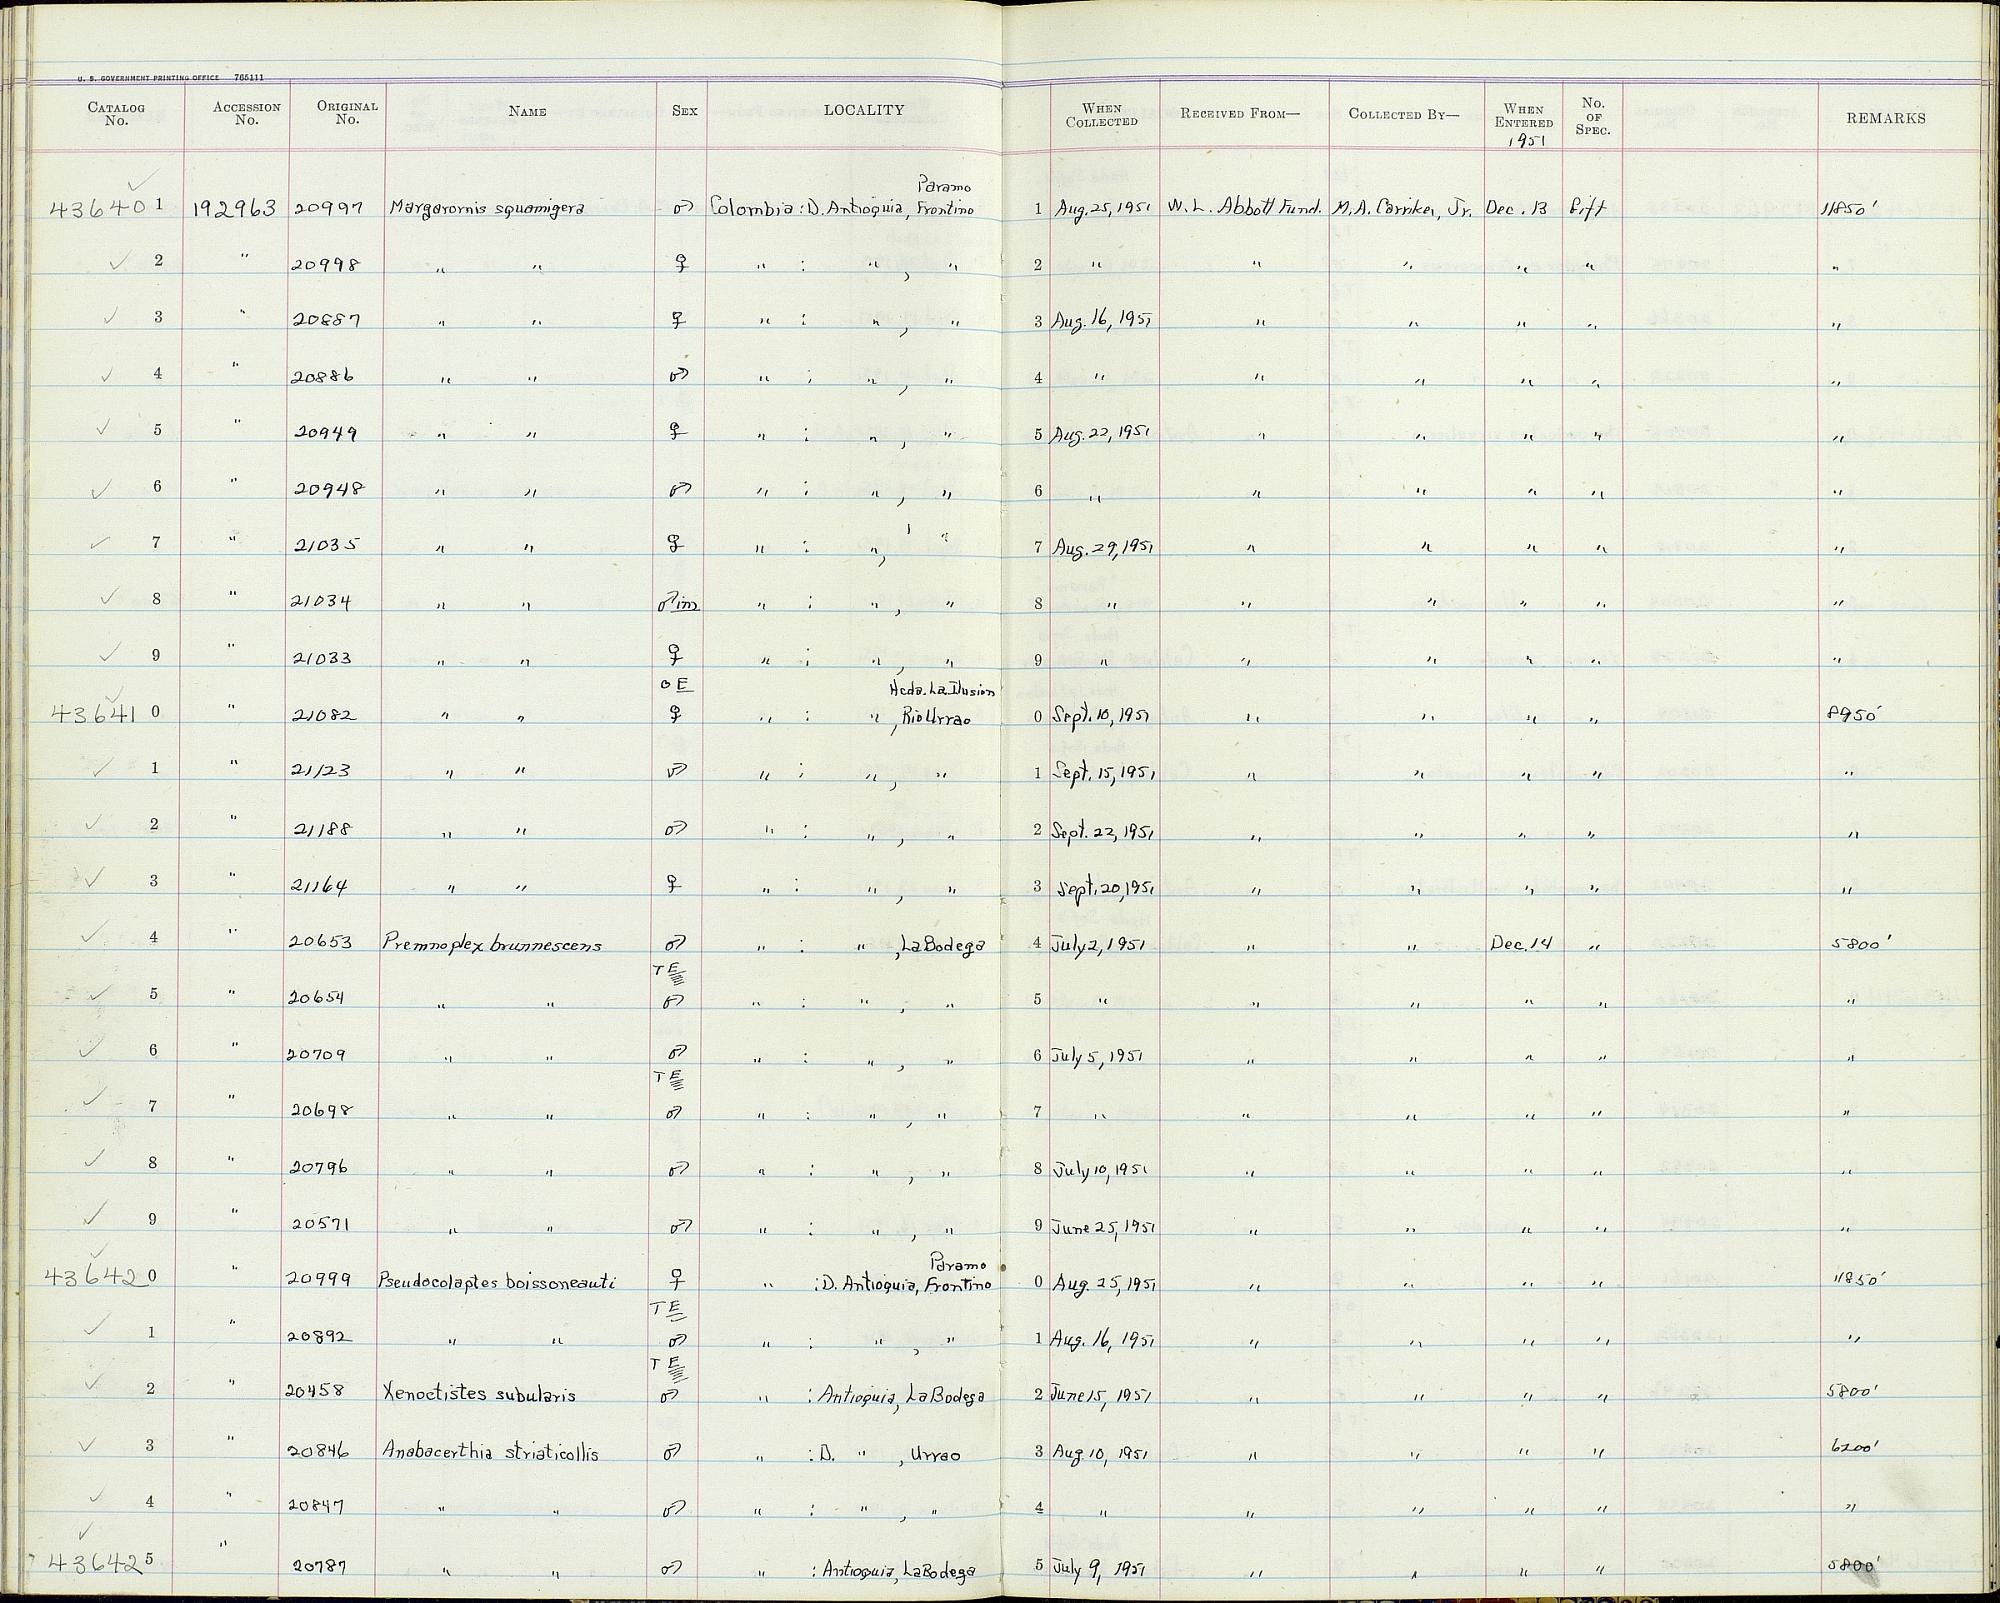 U. S. GOVERNMENT PRINTING OFFICE 765111
CATALOG No. ACCESSION No. ORIGINAL No. NAME SEX LOCALITY WHEN COLLECTED RECEIVED FROM— COLLECTED BY— WHEN ENTERED 1951 No. OF SPEC. REMARKS
Paramo
436401 192963 20997 Margarornis squamigera ♂ Colombia : D. Antioquia, Frontino 1 Aug. 25, 1951 W. L. Abbott Fund. M. A. Carriker, Jr. Dec. 13 Gift 11850'
2 " 20998 " " ♀ " : " , " 2 " " " " " "
3 " 20887 " " ♀ " : " , " 3 Aug. 16, 1951 " " " " "
4 " 20886 " " ♂ " : " , " 4 " " " " " "
5 " 20949 " " ♀ " : " , " 5 Aug. 22, 1951 " " " " "
6 " 20948 " " ♂ " : " , " 6 " " " " " "
7 " 21035 " " ♀ " : " , " 7 Aug. 29, 1951 " " " " "
8 " 21034 " " ♂ im " : " , " 8 " " " " " "
9 " 21033 " " ♀ " : " , " 9 " " " " " "
O E Hcda. La Ilusion
436410 " 21082 " " ♀ " : " , Rio Urrao 0 Sept. 10, 1951 " " " " 8950'
1 " 21123 " " ♂ " : " , " 1 Sept. 15, 1951 " " " " "
2 " 21188 " " ♂ " : " , " 2 Sept. 22, 1951 " " " " "
3 " 21164 " " ♀ " : " , " 3 Sept. 20, 1951 " " " " "
4 " 20653 Premnoplex brunnescens ♂ " : " , La Bodega 4 July 2, 1951 " " Dec. 14 " 5800'
T E
5 " 20654 " " ♂ " : " , " 5 " " " " " "
6 " 20709 " " ♂ " : " , " 6 July 5, 1951 " " " " "
T E
7 " 20698 " " ♂ " : " , " 7 " " " " " "
8 " 20796 " " ♂ " : " , " 8 July 10, 1951 " " " " "
9 " 20571 " " ♂ " : " , " 9 June 25, 1951 " " " " "
Paramo
436420 " 20999 Pseudocolaptes boissoneauti ♀ " : D. Antioquia, Frontino 0 Aug. 25, 1951 " " " " 11850'
T E
1 " 20892 " " ♂ " : " , " 1 Aug. 16, 1951 " " " " "
T E
2 " 20458 Xenoctistes subularis ♂ " : Antioquia, La Bodega 2 June 15, 1951 " " " " 5800'
3 " 20846 Anabacerthia striaticollis ♂ " : D. " , Urrao 3 Aug. 10, 1951 " " " " 6200'
4 " 20847 " " ♂ " : " , " 4 " " " " " "
436425 " 20787 " " ♂ " : Antioquia, La Bodega 5 July 9, 1951 " " " " 5800'